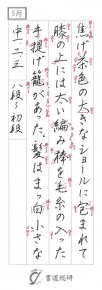 5月
焦げ茶色の大きなショールに包まれて
膝の上には太い編み棒を毛糸の入った
手提げ籠があった。髪はまっ白小さな
中一二三 八段〜初段
書道総研